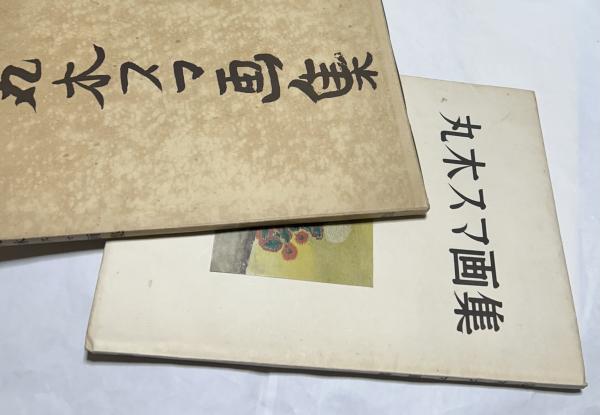 丸木スマ画集
丸木スマ画集